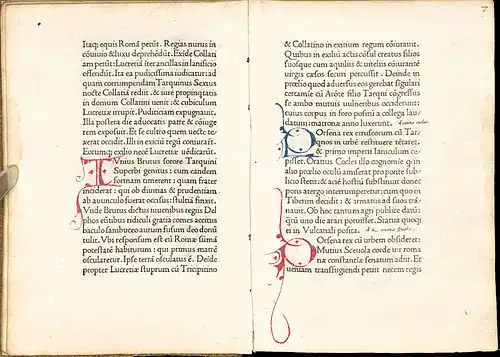 Itaq; equis Romã petũt. Regias nurus in
cõuiuio & luxu deprehẽdũt. Exĩde Collati
am petũt: Lucretiã iter ancillas in lanificio
offendũt. Ita ea pudicissima iudicatur: ad
quam corrumpendam Tarquinius Sextus
nocte Collatiã rediit. & iure propinqtatis
in domum Collatini uenit: & cubiculum
Lucretiæ irrupit. Pudicitiam expugnauit.
Illa postera die aduocatis patre & cõiuge
rem exposuit. Et se cultro quem ueste te
xerat occidit. Illi in exciũ regũ coniurarũt.
Eorumq; exilio necẽ Lucretiæ uẽdicarũt.
IVnius Brutus sorore Tarquini
Superbi genitus: cum eandem
fortunam timeret: quam frater
inciderat: qui ob diuitias & prudentiam
ab auunculo fuerat occisus: stultiã finxit.
Vnde Brutus dictus iuuenibus regiis Del
phos eũtibus ridiculi gratia comes accitus
baculo sambuceo aurum fusum deo donũ
tulit. Vbi responsum est eũ Romæ sũmã
potestatẽ habiturum: qui primus matrẽ
oscularetur. Ipse terrã osculatus ẽ. Deide
propter Lucretiæ stuprum cũ Tricipitino
& Collatino in exitium regum cõiurauit.
Quibus in exiliũ actis cõsul creatus filios
suosque cum aquilis & uitellis cõiurauerãt
uirgis cæsos securi percussit. Deinde in
prælio quod aduersus eos gerebat sigulari
certamie cũ Arõte filio Tarqni cõgressus
se ambo mutuis uulneribus occiderunt:
cuius corpus in foro positũ a collega lau
datum: matronæ anno luxerunt.
POrsena rex etruscorum cũ Tar
qnios in urbẽ restituere tẽtaret.
& primo impetu Ianiculum ce
pisset. Oratius Cocles illo cognomie q in
alio prælio oculũ amiserat pro ponte subli
cio stetit: & aciẽ hostiũ substinuit donec
pons a tergo interrumperetur: cum quo in
Tiberim decidit: & armatus ad suos trã
nauit. Ob hoc tantum agri publice datũ:
qtũ uno die arari potuisset. Statua quoq
ei in Vulcanali posita.
POrsena rex cũ urbem obsideret:
Mutius Sceuola corde uir roma
næ constantiæ senatum adiit. Et
ueniam transfugiendi petiit necem regis